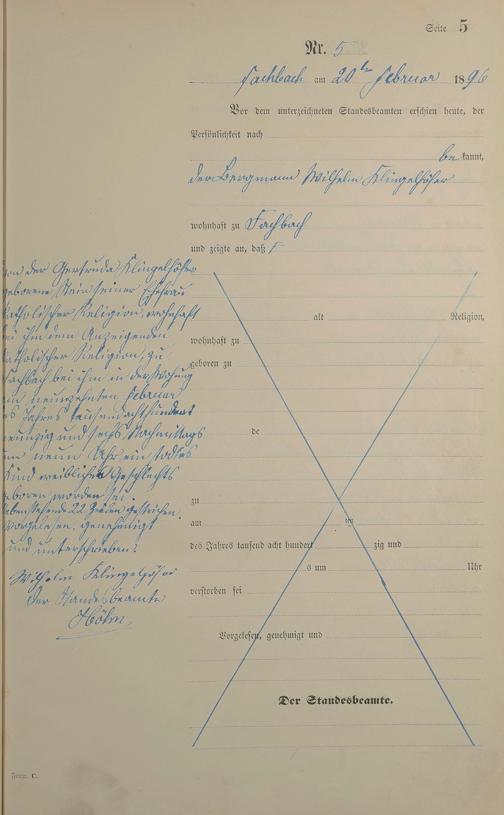 Seite 5
Nr. 5
Fachbach am 20ten Februar 1896
Vor dem unterzeichneten Standesbeamten erschien heute, der
Persönlichkeit nach
bekannt,
der Bergmann Wilhelm Klingelhöfer
wohnhaft zu Fachbach
und zeigte an, daß
von der Gertruda Klingelhöfer
geborene Stein seiner Ehefrau
katholischer Religion, wohnhaft
bei ihm dem Anzeigenden
katholischer Religion, zu
Fachbach bei ihm in der Wohnung
am neunzehnten Februar
des Jahres tausend achthundert
neunzig und sechs Nachmittags
um neun Uhr ein todtes
Kind weiblichen Geschlechts
geboren worden sei.
Nebenstehende 22 gestrichen.
Vorgelesen, genehmigt
und unterschrieben:
Wilhelm Klingelhöfer
Der Standesbeamte
alt Religion,
wohnhaft zu
geboren zu
de
zu
am
des Jahres tausend acht hundert zig und
s um Uhr
verstorben sei
Vorgelesen, genehmigt und
Der Standesbeamte.
Form. C.